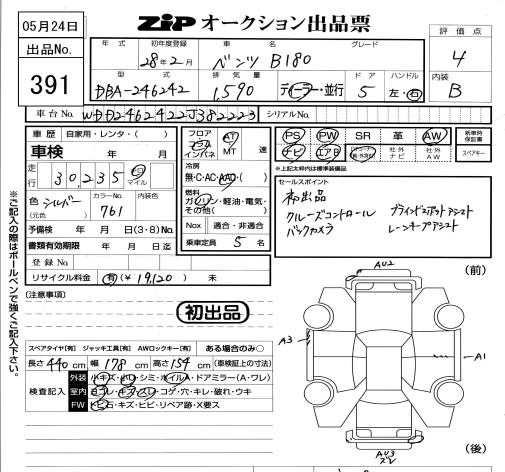 05月24日
出品No.
391
ZiP オークション出品票
評価点
4
内装
B
年式 初年度登録 車名 グレード
28年2月 ベンツ B180
型式 排気量 ドア ハンドル
DBA-246242 1,590 ディーラー・並行 5 左・右
車台No. WDD2462422J382223 シリアルNo.
車歴 自家用・レンタ・( )
車検 年 月
走行 30,235 マイル
色 シルバー カラーNo. 内装色
(元色) 761
予備検 年 月 日(3・8)No.
書類有効期限 年 月 日迄
登録No.
リサイクル料金 有(¥19,120) 未
フロア コラム インパネ AT MT 速
冷房
無・C・AC・AAC・( )
燃料
ガソリン・軽油・電気・その他( )
Nox 適合・非適合
乗車定員 5 名
PS PW SR 革 AW
ナビ エアB 社外ナビ 社外AW
新車時保証書
スペアキー
※上記太枠内は標準装備品
セールスポイント
初出品
クルーズコントロール ブラインドスポットアシスト
バックカメラ レーンキープアシスト
※ご記入の際はボールペンで強くご記入下さい。
[注意事項]
初出品
スペアタイヤ[有] ジャッキ工具[有] AWロックキー[有] ある場合のみ○
長さ 440 cm 幅 178 cm 高さ 154 cm (車検証上の寸法)
検査記入
外装 小キズ・ヒロ・シミ・ホイルA・ドアミラー(A・ワレ)
室内 ヨゴレ・キズ・スレ・コゲ・穴・キレ・破れ・ウキ
FW トビ石・キズ・ヒビ・リペア跡・X要ス
AU2
(前)
A3
A1
AU3
スレ
(後)